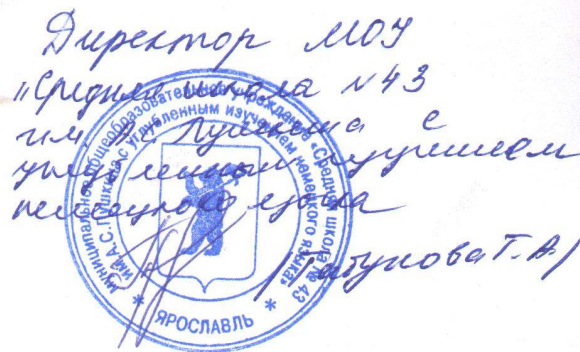 Директор МОУ
"Средняя школа №43
им. А.С. Пушкина с
углубленным изучением
немецкого языка
/Табунова Т.А/
муниципальное общеобразовательное учреждение «Средняя школа № 43
им. А.С. Пушкина с углубленным изучением немецкого языка»
* ЯРОСЛАВЛЬ *